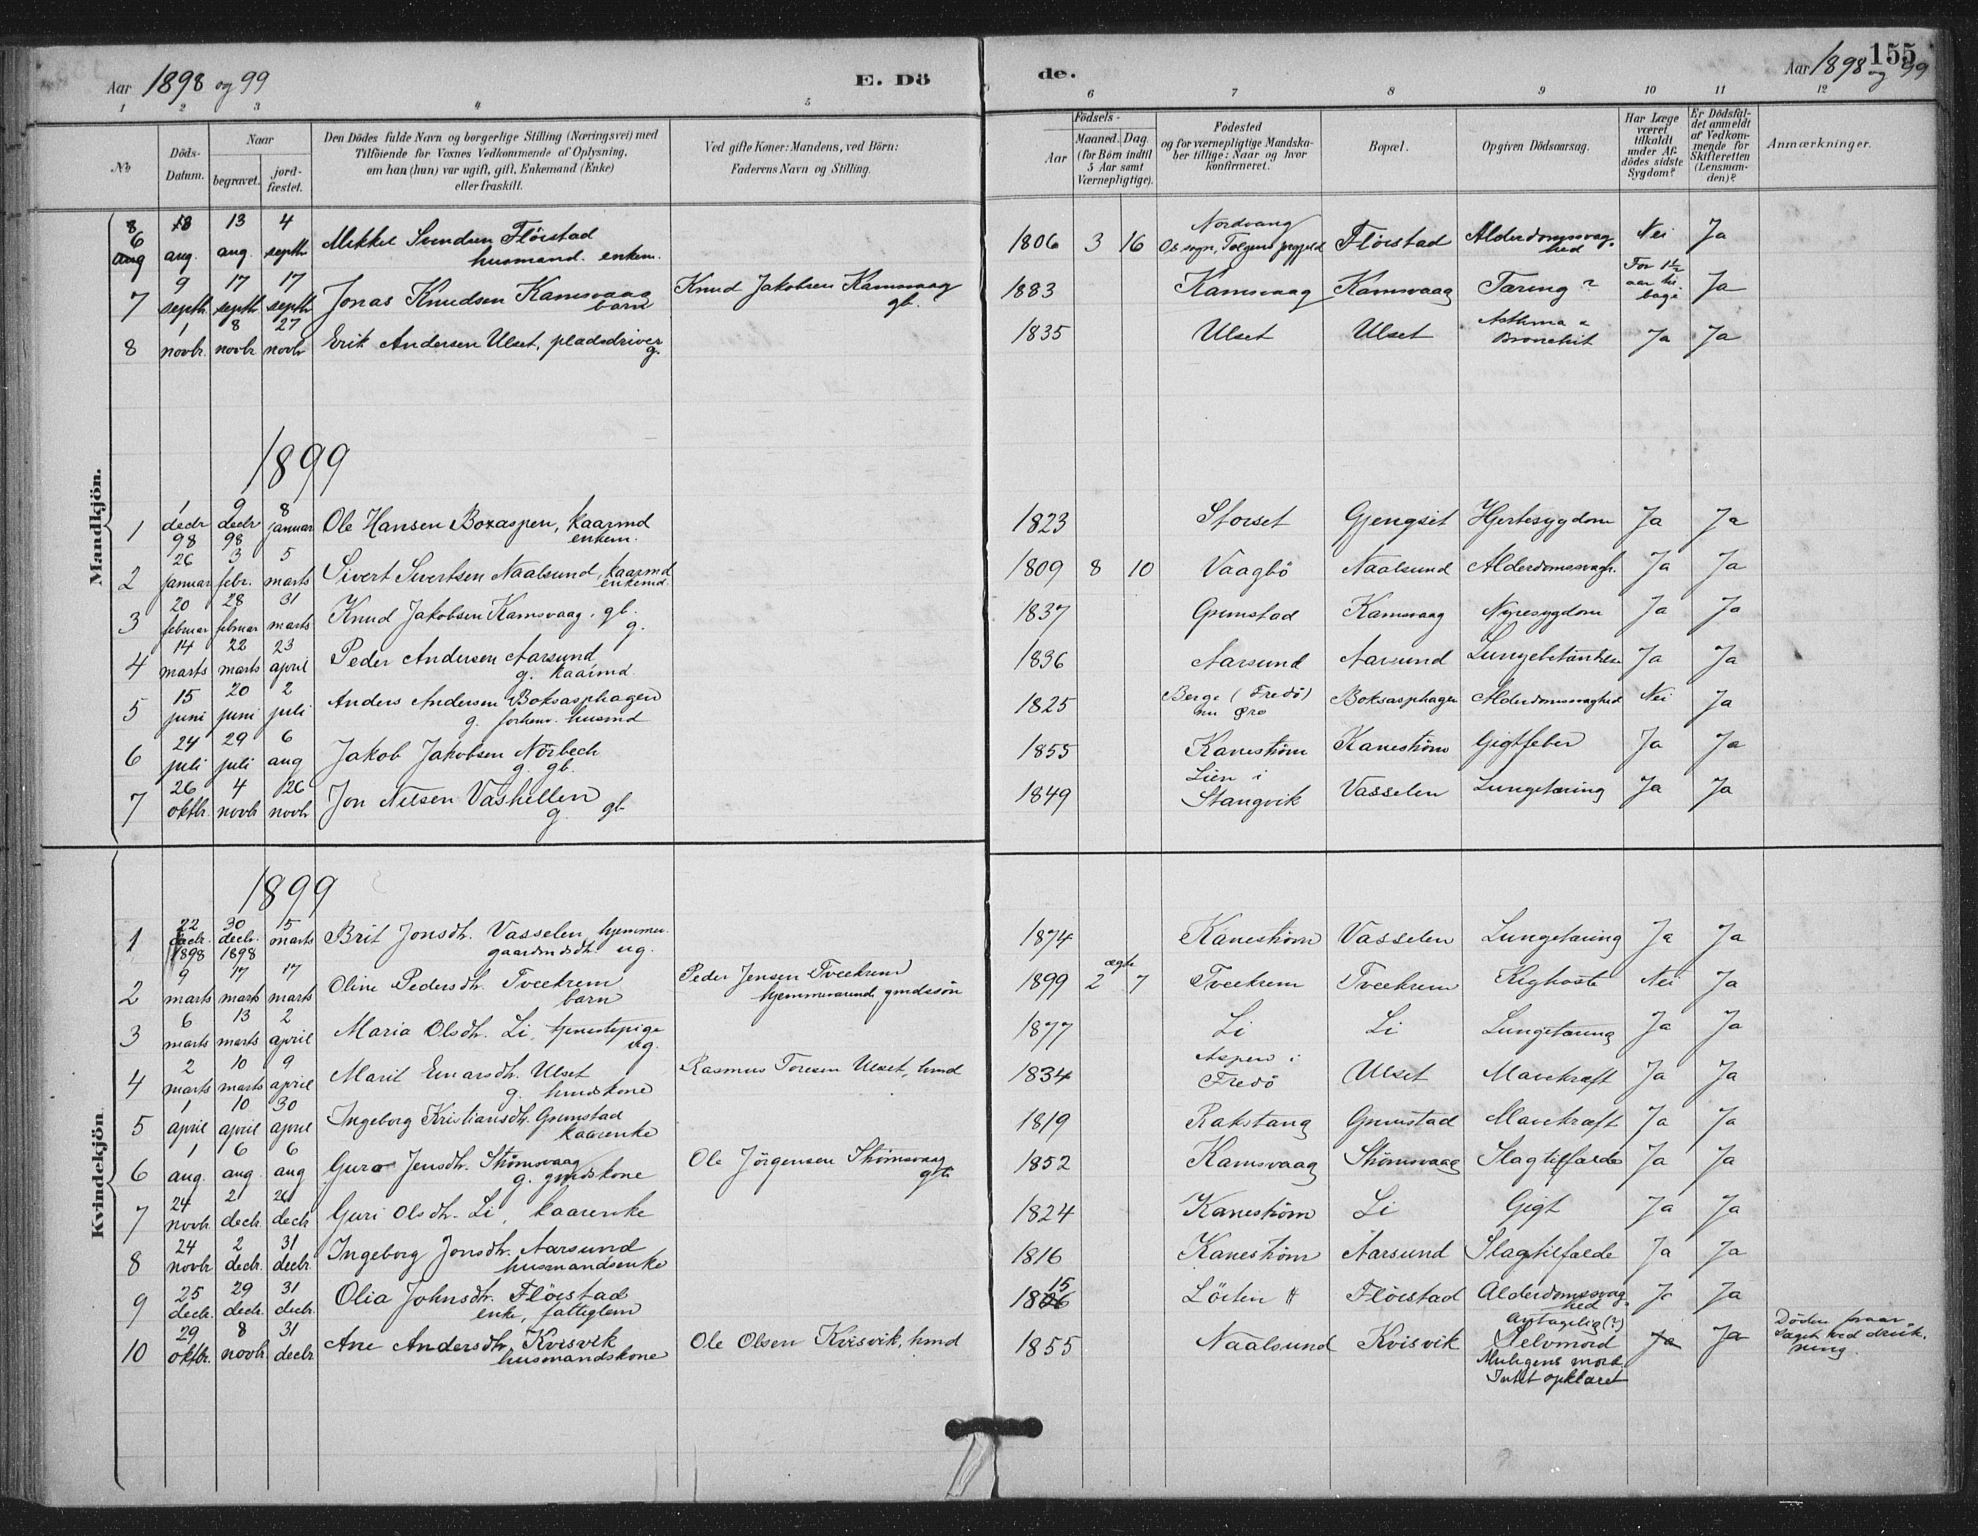 Aar 1898 og 99
E. Dö
de.
Aar 1898 og 99
155
1 2 3 4 5 6 7 8 9 10 11 12
No
Döds-Datum.
Naar
begravet.
jord-fæstet.
Den Dödes fulde Navn og borgerlige Stilling (Næringsvei) med
Tilföiende for Voxnes Vedkommende af Oplysning,
om han (hun) var ugift, gift, Enkemand (Enke)
eller fraskilt.
Ved gifte Koner: Mandens, ved Börn:
Faderens Navn og Stilling.
Födsels-
Aar
Maaned. Dag.
(for Börn indtil
5 Aar samt
Værnepligtige).
Födested
og for værnepligtige Mandska-
ber tillige: Naar og hvor
konfirmeret.
Bopæl.
Opgiven Dödsaarsag.
Har Læge
været
tilkaldt
under Af-
dödes sidste
Sygdom?
Er Dödsfal-
det anmeldt
af Vedkom-
mende for
Skifteretten
(Lensman-
den)?
Anmærkninger.
Mandkjön.
6 aug. 13 aug. 4 septb. Mikkel Svendsen Flöistad husmand. enkem. 1806 3 16 Nordvang Os sogn, Tolgens prgjeld Flöistad Alderdomssvaghed Nei Ja
7 9 septb. 17 septb. 17 septb. Jonas Knudsen Kamsvaag barn Knud Jakobsen Kamsvaag gb. 1883 Kamsvaag Kamsvaag Tæring ? For 1½ aar tilbage Ja
8 1 novbr. 8 novbr 27 novbr Erik Andersen Ulset, pladsdriver g. 1835 Ulset Ulset Asthma & Bronchit Ja Ja
1899
1 1 decbr 98 9 decbr 98 8 januar Ole Hansen Boxaspen, kaarmd enkem. 1823 Storset Gjengset Hjertesygdom Ja Ja
2 26 januar 3 febr. 5 marts Sivert Sivertsen Naalsund, kaarmd enkemd. 1809 8 10 Vaagbö Naalsund Alderdomssvagh. Ja Ja
3 20 februar 28 februar 31 marts Knud Jakobsen Kamsvaag, gb. g. 1837 Grimstad Kamsvaag Nyresygdom Ja Ja
4 14 marts 22 marts 23 april Peder Andersen Aarsund g. kaarmd. 1836 Aarsund Aarsund Lungebetændelse Ja Ja
5 15 juni 20 juni 2 juli Anders Andersen Boksasphagen g. forhenv. husmd 1825 Berge (Fredö) nu Öre Boksasphagen Alderdomssvaghed Nei Ja
6 24 juli 29 juli 6 aug Jakob Jakobsen Nörbech g. gb. 1855 Kaneström Kaneström Gigtfeber Ja Ja
7 26 oktbr. 4 novbr 26 novbr Jon Nilsen Vashellen g. gb 1849 Lien i Stangvik Vasselen Lungetæring Ja Ja
Kvindekjön
1899
1 22 decbr. 1898 30 decbr. 1898 5 marts Brit Jonsdtr. Vasselen, hjemmev. gaardmdsdtr. ug. 1874 Kaneström Vasselen Lungetæring Ja Ja
2 9 marts 17 marts 17 marts Oline Pedersdtr. Tveekrem barn Peder Jensen Tveekrem hjemmeværende gmdssön 1899 ægte 2 7 Tveekrem Tveekrem Kighoste Nei Ja
3 6 marts 13 marts 2 april Maria Olsdtr. Li, tjenestepige ug. 1877 Li Li Lungetæring Ja Ja
4 2 marts 10 marts 9 april Marit Einarsdtr. Ulset g. hmdskone Rasmus Toresen Ulset, hmd 1834 Aspen i Fredö Ulset Mavekræft Ja Ja
5 1 april 10 april 30 april Ingeborg Kristiansdtr. Grimstad kaarenke 1819 Rakstang Grimstad Mavekræft Ja Ja
6 1 aug. 6 aug. 6 aug Guro Jensdtr. Strömsvaag g. gmdskone Ole Jörgensen Strömsvaag gb. 1852 Kamsvaag Strömsvaag Slagtilfælde Ja Ja
7 24 novbr 2 decbr. 26 decbr Guri Olsdtr. Li, kaarenke 1824 Kaneström Li Gigt Ja Ja
8 24 novbr 2 decbr. 31 decbr. Ingeborg Jonsdtr. Aarsund husmandsenke 1816 Kaneström Aarsund Slagtilfælde Ja Ja
9 25 decbr. 29 decbr. 31 decbr. Olia Johnsdtr. Flöistad enke, fattiglem 1815 Löiten Flöistad Alderdomssvaghed Ja Ja
10 29 oktbr. 8 novbr 31 decbr Ane Andersdtr. Kvisvik husmandskone Ole Olsen Kvisvik, hmd 1855 Naalsund Kvisvik antagelig (?) Selvmord Muligens mord. Intet opklaret Ja Ja Döden foraarsaget ved drukning.